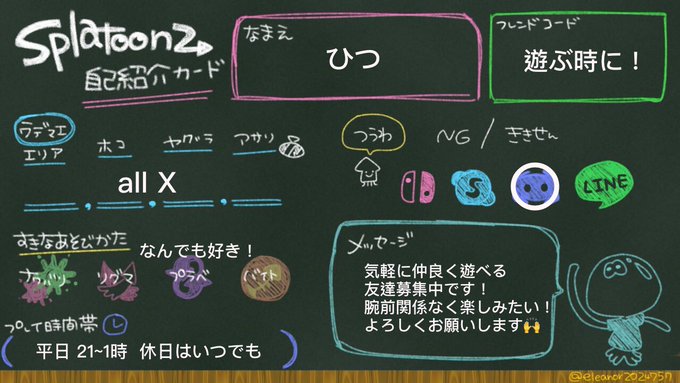 Splatoon2
自己紹介カード
なまえ
ひつ
フレンドコード
遊ぶ時に！
ウデマエ
エリア
ホコ
ヤグラ
アサリ
all X
つうわ
NG / ききせん
S
LINE
すきなあそびかた
なんでも好き！
ナワバリ
リグマ
プラベ
バイト
プレイ時間帯
(平日 21~1時 休日はいつでも)
メッセージ
気軽に仲良く遊べる
友達募集中です！
腕前関係なく楽しみたい！
よろしくお願いします🙌
@eleanor2024757